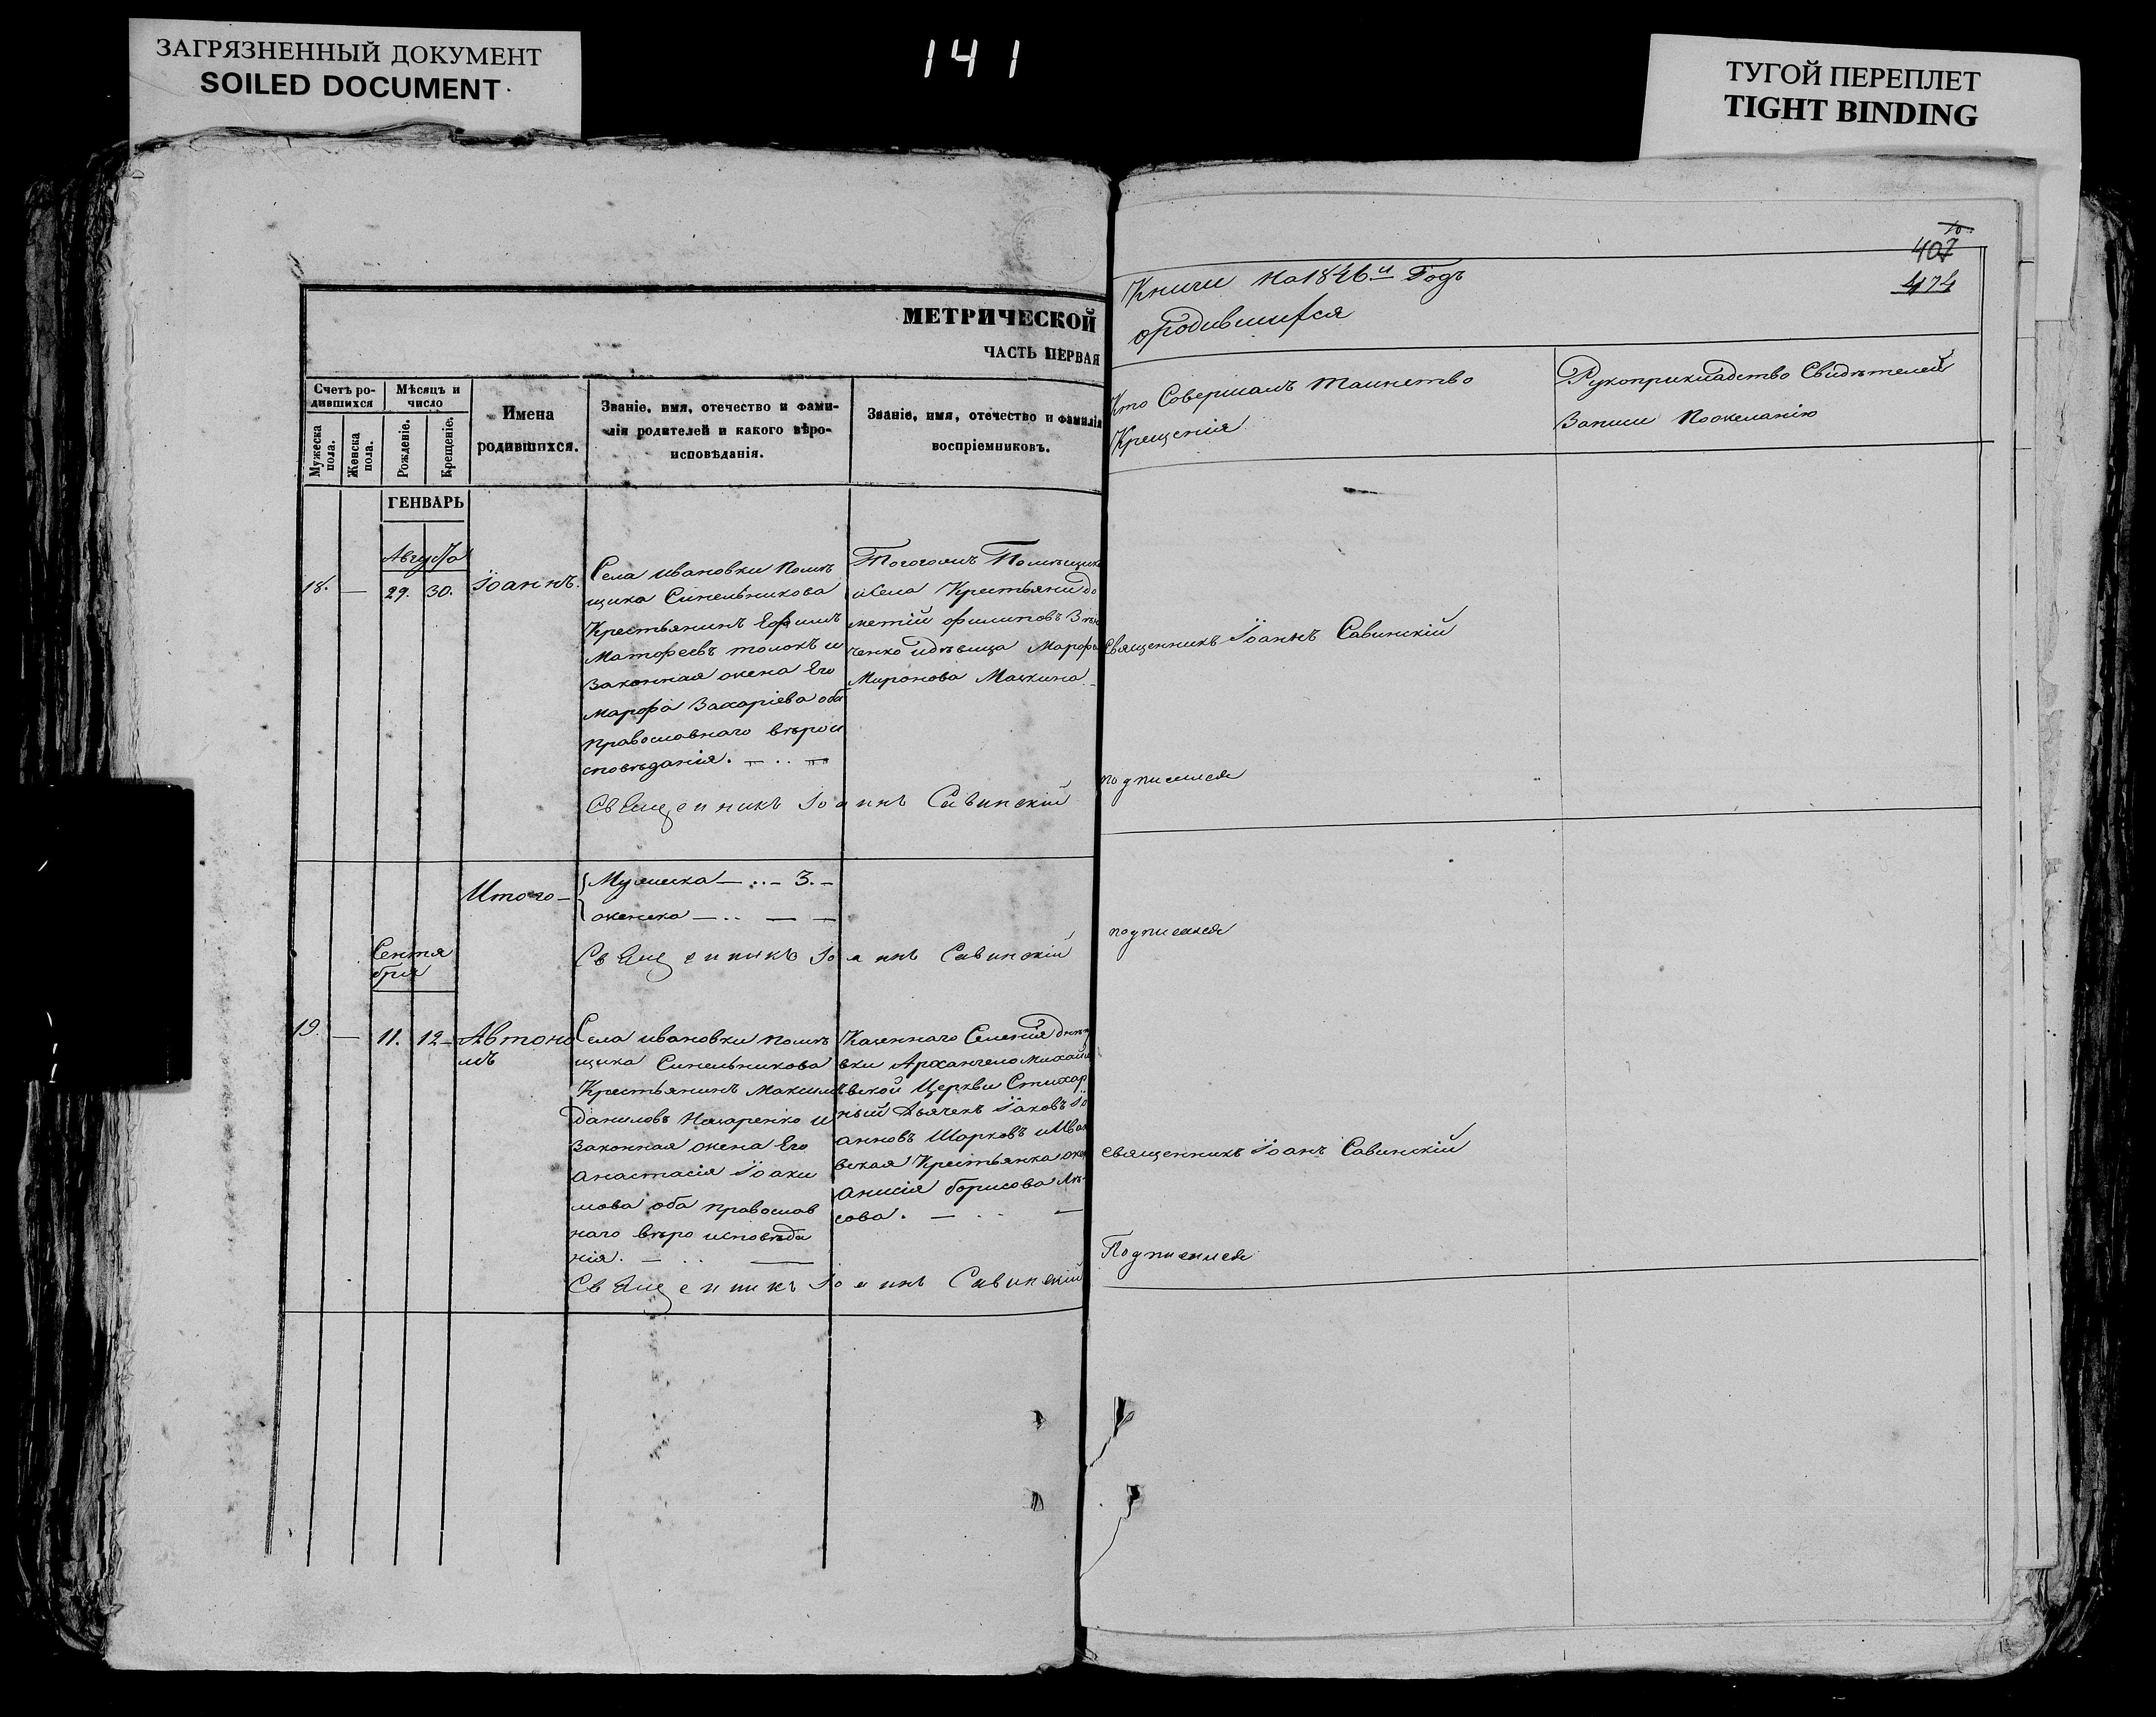 ЗАГРЯЗНЕННЫЙ ДОКУМЕНТ
SOILED DOCUMENT
141
ТУГОЙ ПЕРЕПЛЕТ
TIGHT BINDING
407
474
МЕТРИЧЕСКОЙ
ЧАСТЬ ПЕРВАЯ
Книги на 1846й Годъ
ородившихся
Счетъ ро-
дившихся
Мужеска
пола.
Женска
пола.
Мѣсяцъ и
число
Рожденіе.
Крещеніе.
Имена
родившихся.
Званіе, имя, отечество и фами-
лія родителей и какого вѣро-
исповѣданія.
Званіе, имя, отечество и фамилія
воспріемниковъ.
Кто Совершалъ таинство
Крещенія
Рукоприкладство Свидѣтелей
Записи Пожеланію
ГЕНВАРЬ
Августа
18. — 29. 30. Іоаннъ.
Села ивановки помѣ
щика Синельникова
Крестьянинъ Ефимъ
Матфеевъ толокъ и
законная жена Его
Марфа Захаріева оба
православнаго вѣрои
сповѣданія.
Тогожъ Помѣщика
иСела Крестьяни до
метій филиповъ
ченко идѣвица Марфа
Миронова Мачкина
Священникъ Іоаннъ Савинскій
СвЯщенникъ Іоаннъ Савинскій
подписался
Итого —
Мужеска — 3. —
женска — — —
СвЯщенникъ Іоаннъ Савинскій
подписался
Сентя
бря
19. — 11. 12 — Автоно
мъ
Села ивановки помѣ
щика Синельникова
Крестьянинъ Максимъ
Даниловъ Назаренко и
Законная жена Его
Анастасія Іоаки
мова оба православ
наго вѣро исповѣда
нія.
Казеннаго Селенія
вки Архангело Михайло
вской Церкви Стихар
ный Дьячекъ Іаковъ Іо
анновъ Шарковъ иИван
вская Крестьянка
Анисія борисова Лѣ-
сова.
священникъ Іоанъ Савинскій
СвЯщенникъ Іоаннъ Савинскій
Подписался